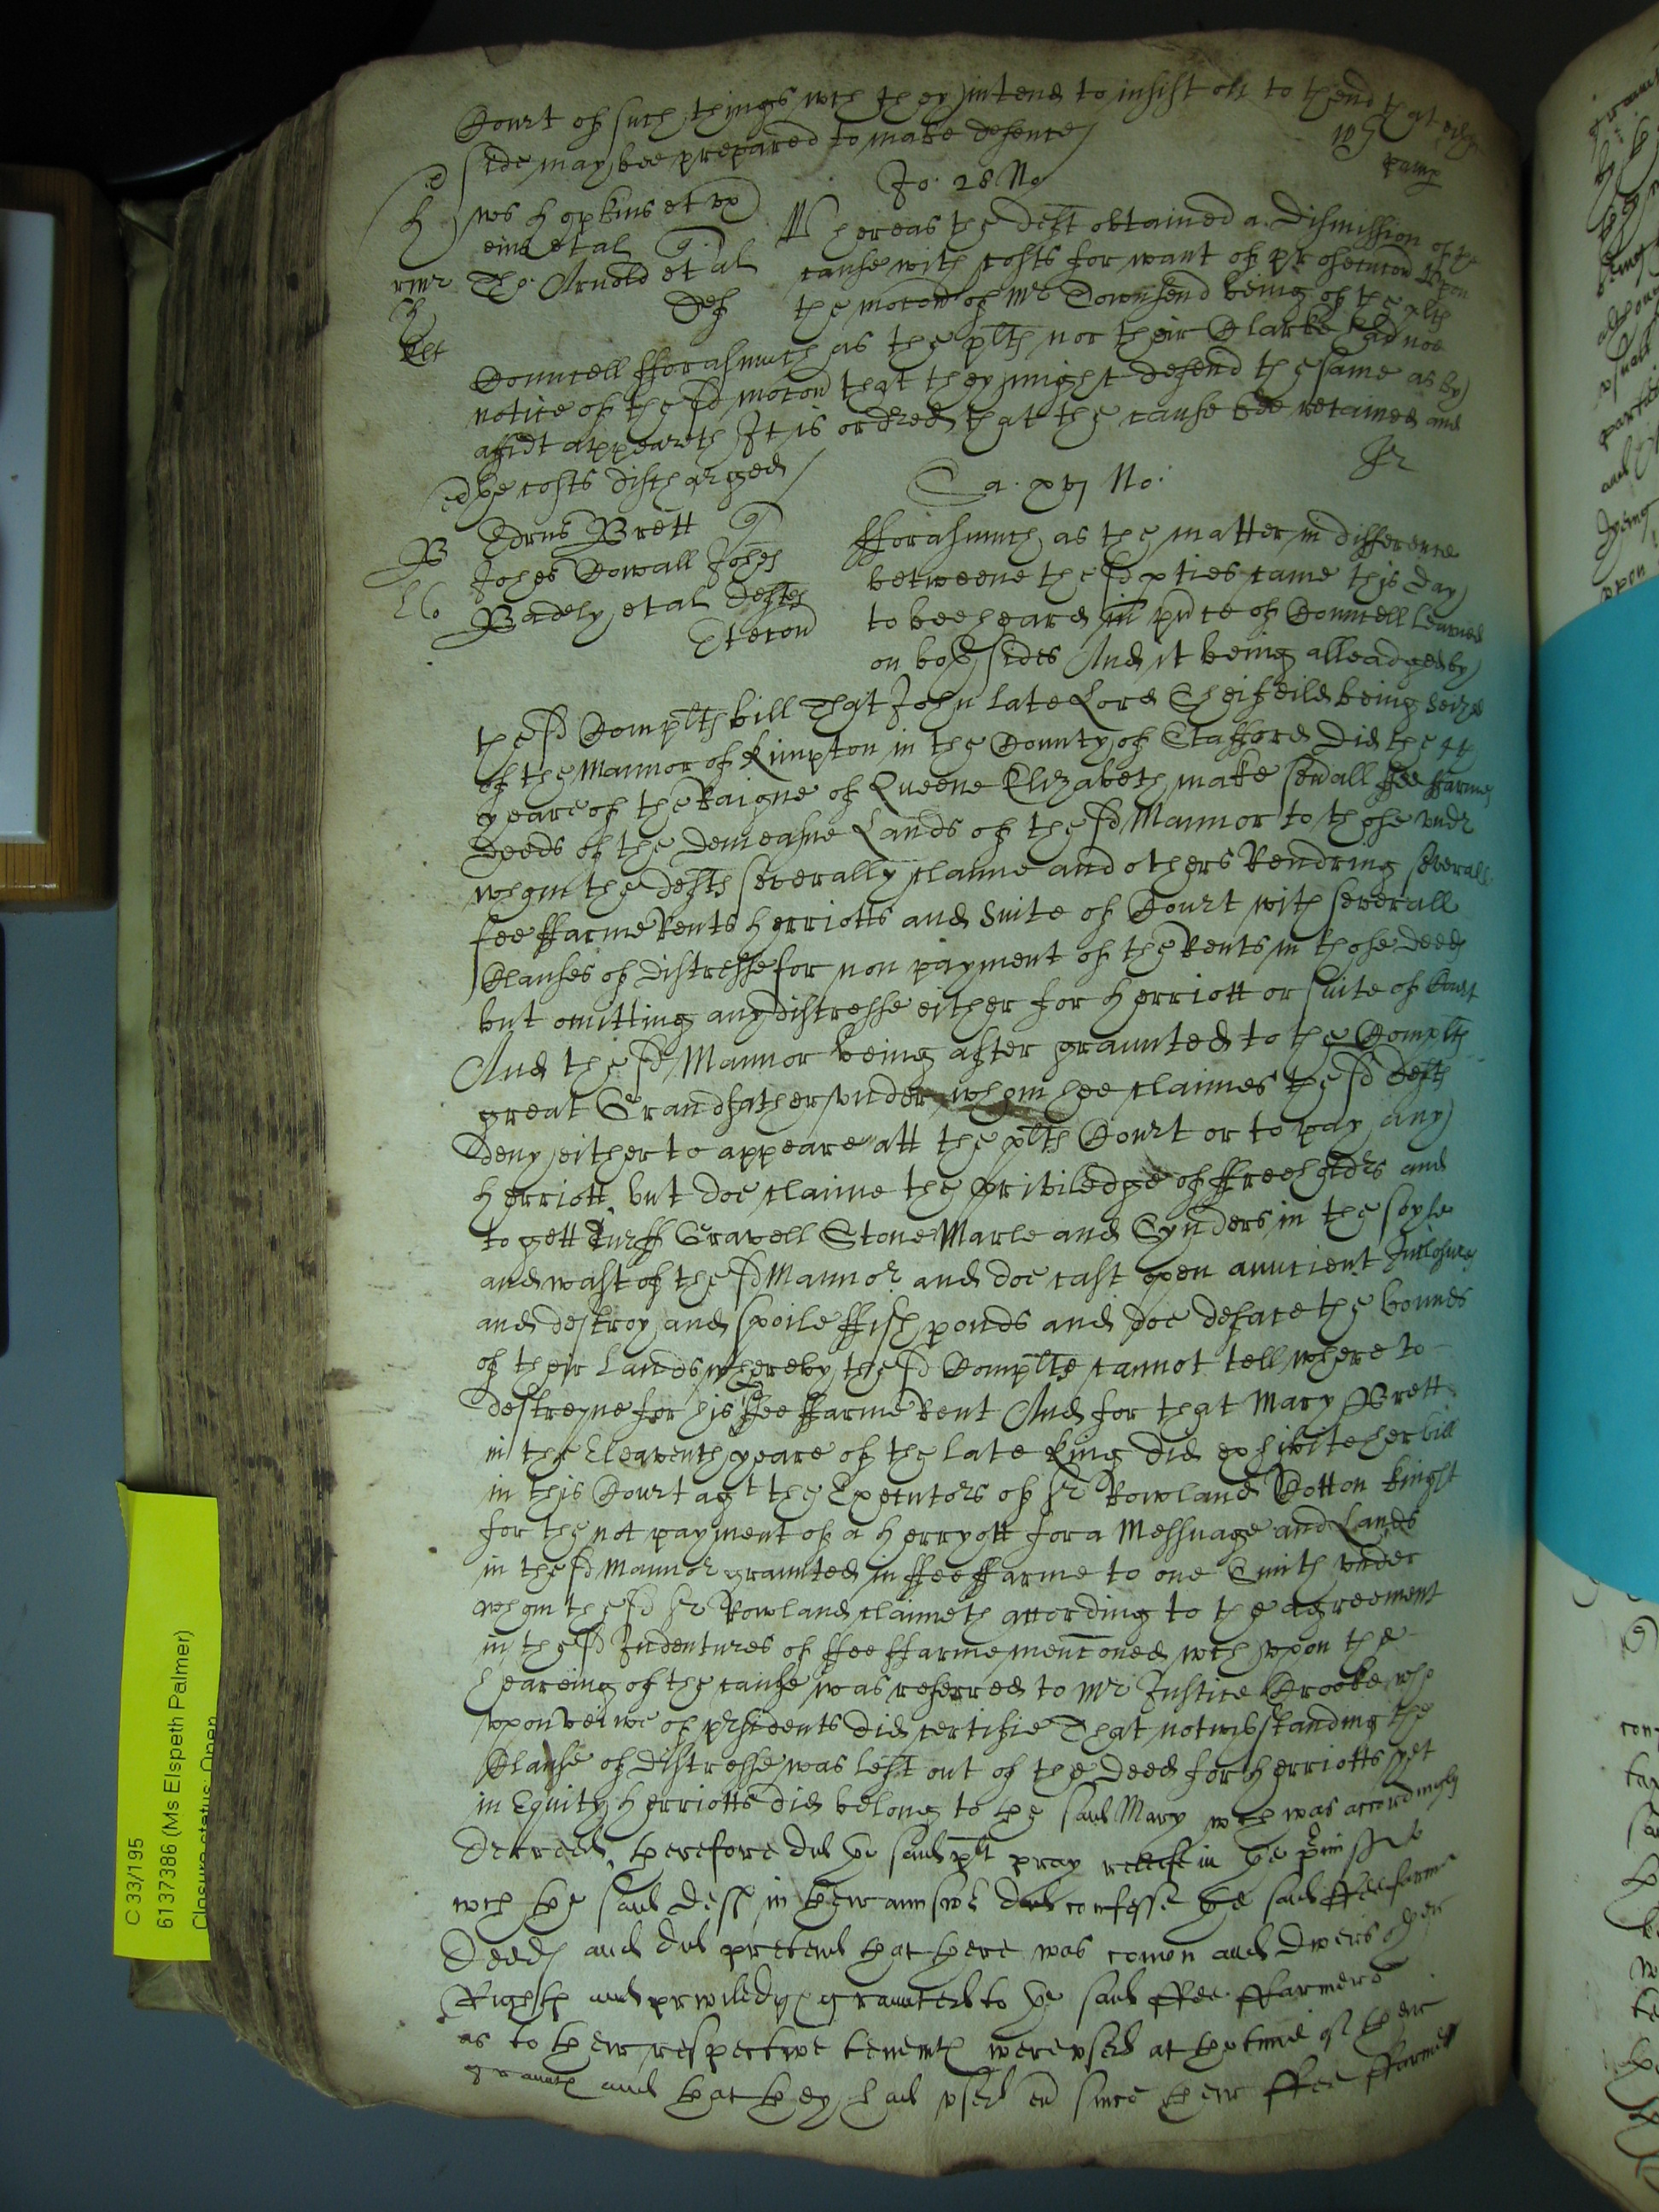 Court of such things wch they intend to insist on to thend that eůy
side may bee prepared to make defence
Jo. 28 No
ws Hopkins et ux
et al
Tho. Arnold et al
Def
Whereas the deft obtained a dismission of the
cause with costs for want of prosecucon upon
the mocon of Mr Townsend being of the plts
Councell fforasmuch as the plts nor their Clarke had noe
notice of the sd mocon that they might defend the same as by
affidt appeareth It is ordred that the cause bee retained and
the costs discharged
Sa. xvj No:
B
Edrus Brett q
Johes Cowall Johes
Badely et al defts
fforasmuch as the matter in difference
betweene the sd pties came this day
to bee heard in pnce of Councell learned
on both sides And it being alleadged by
the sd Complts bill That John late Lord Sheifeild being seized
of the Mannor of Kimpton in the County of Stafford did the 44
yeare of the Raigne of Queene Elizabeth make seuall ffee ffarme
deeds of the demeasne Lands of the sd Mannor to those undr
whom the defts severally claime and others Rendring severall
fee ffarme Rents herriotts and Suite of Court with severall
Clauses of distresse for non payment of the Rents in those deeds
but omitting any distresse either for herriott or suite of Court
And the sd Mannor being after graunted to the Complts
great Grandfather under whom hee claimes the sd defts
deny either to appeare att the plts Court or to pay any
herriott but doe claime the priviledge of ffreeholdrs and
to gett Turff Gravell Stone Marle and Synders in the soyle
and wast of the sd Mannor and doe cast open auncient Inclosures
and destroy and spoile ffish ponds and doe deface the bounds
of their Lands whereby the sd Complte cannot tell where to
destreyne for his ffee ffarme Rent And for that Mary Brett
in the Eleaventh yeare of the late King did exhibite her bill
in this Court agt the Executors of Sr Rowland Cotton knight
for the not payment of a herryott for a Messuage and Lands
in the sd Mannor graunted in ffee ffarme to one Smith under
whom the sd Sr Rowland claimeth according to the agreement
in the sd Indentures of ffee ffarme mencōned wch upon the
heareing of the cause was referred to Mr Justice Crooke who
upon veiwe of presidents did certifie That notwthstanding the
Clause of distresse was left out of the deed for herriotts yet
in Equity herriotts did belong to the said Mary wch was accordingly
decreed, therefore did the said plt pray releife in the pmisses
wch the said defts in their answe did confesse the said ffee farme
deeds and did pretend that there was comon and divers other
Rights and priviledges graunted to the said ffee ffarmers
as to their respective tenemts were used at the time of their
graunts and that they had used it since their ffee ffarmes
C 33/195
6137386 (Ms Elspeth Palmer)
Closure status: Open